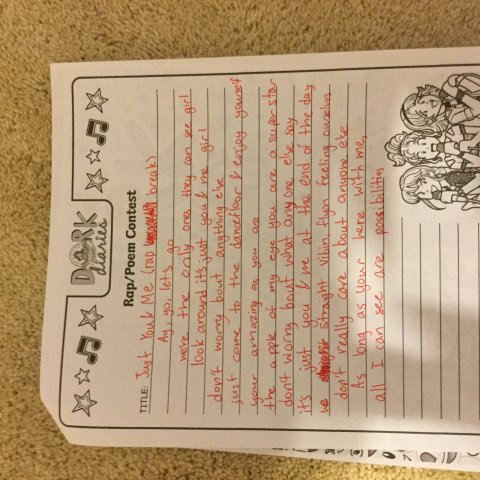 DORK
diaries
Rap/Poem Contest
TITLE: Just You & Me (rap break)
Ay, go, let's go
we're the only ones they can see girl
look around it's just you & me girl
don't worry bout anything else
just come to the dancefloor & enjoy yourself
your amazing as you are
the apple of my eye you are a super star
don't worry bout what anyone else say
it's just you & me at the end of the day
we straight vibin flyin feeling ourselves
don't really care about anyone else
As long as your here with me,
all I can see are possibilities